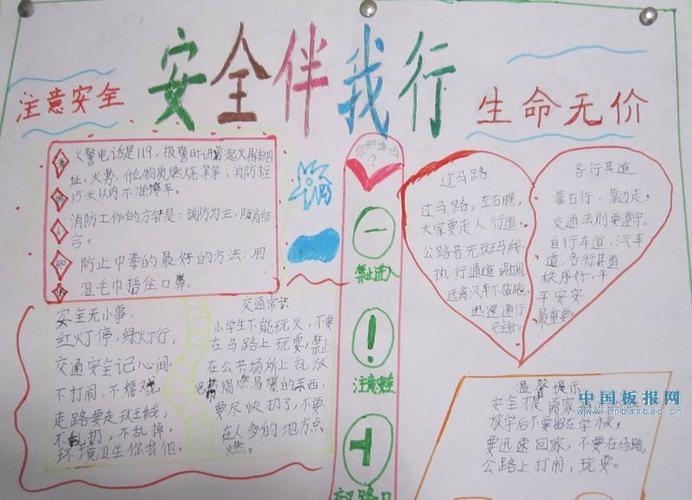 安全伴我行
注意安全
生命无价
火警电话是119,报警时讲着起火
址,火势,什么物质燃烧等等;消防栓
15米以内不准停车。
消防工作的方针是:预防为主,防消结
合。
防止中毒的最好的方法:用
湿毛巾捂住口鼻。
安全无小事
红灯停,绿灯行,
交通安全记心间
不打闹,不嬉戏
走路要走斑线
不乱扔,不乱掉。
环境卫生你我他。
交通常识
小学生不能玩火,不要
在马路上玩耍,禁止
在公共场所上乱放
易燃易爆的东西,
要尽快扔了,不要
在人多的地方点
燃。
?
禁止进入
!
注意
路口
过马路
过马路,左右瞧,
大家要走人行道。
公路若无斑马线
执行通道
远离汽车不奔跑
迅速通行
各行其道
靠右行、靠边走。
交通法则要遵守。
自行车道,汽车
道,各行其道
秩序好,平
平安安
最重要
温馨提示
安全
放学后不要留在学校,
要迅速回家,不要在马路,
公路上打闹,玩耍。
中国板报网
www.cnbanbao.cn